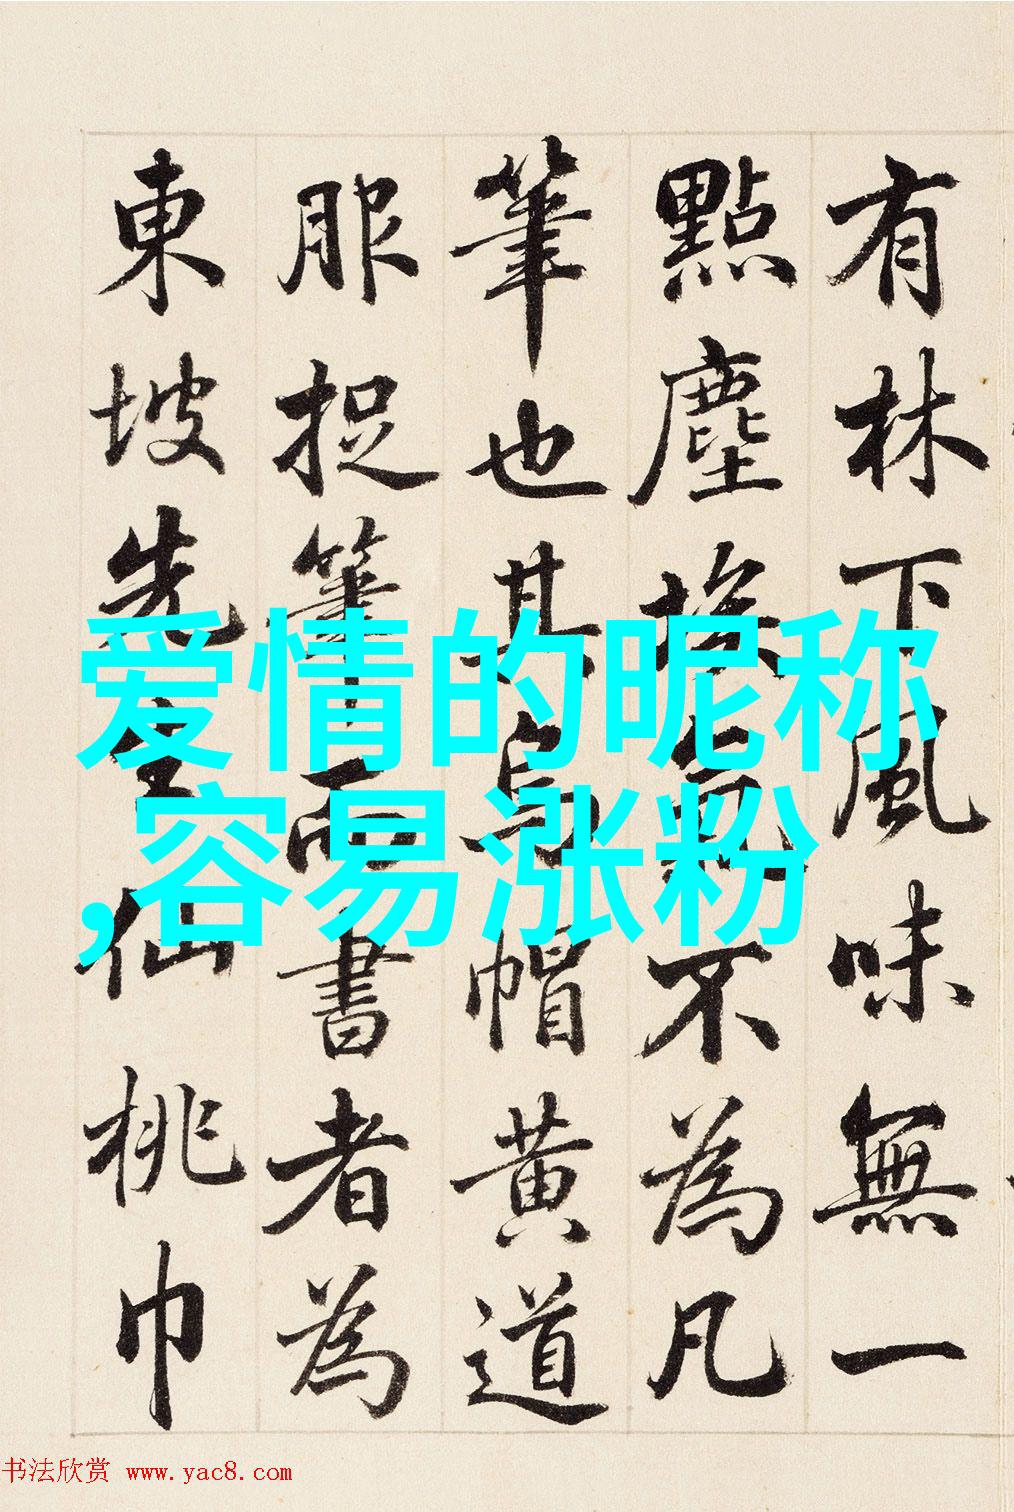 有林下風味無一
點塵埃氣不為凡
筆也其烏帽黃道
服捉筆而書者為
東坡先生仙桃巾
爱情的昵称
,容易涨粉
书法欣赏 www.yac8.com